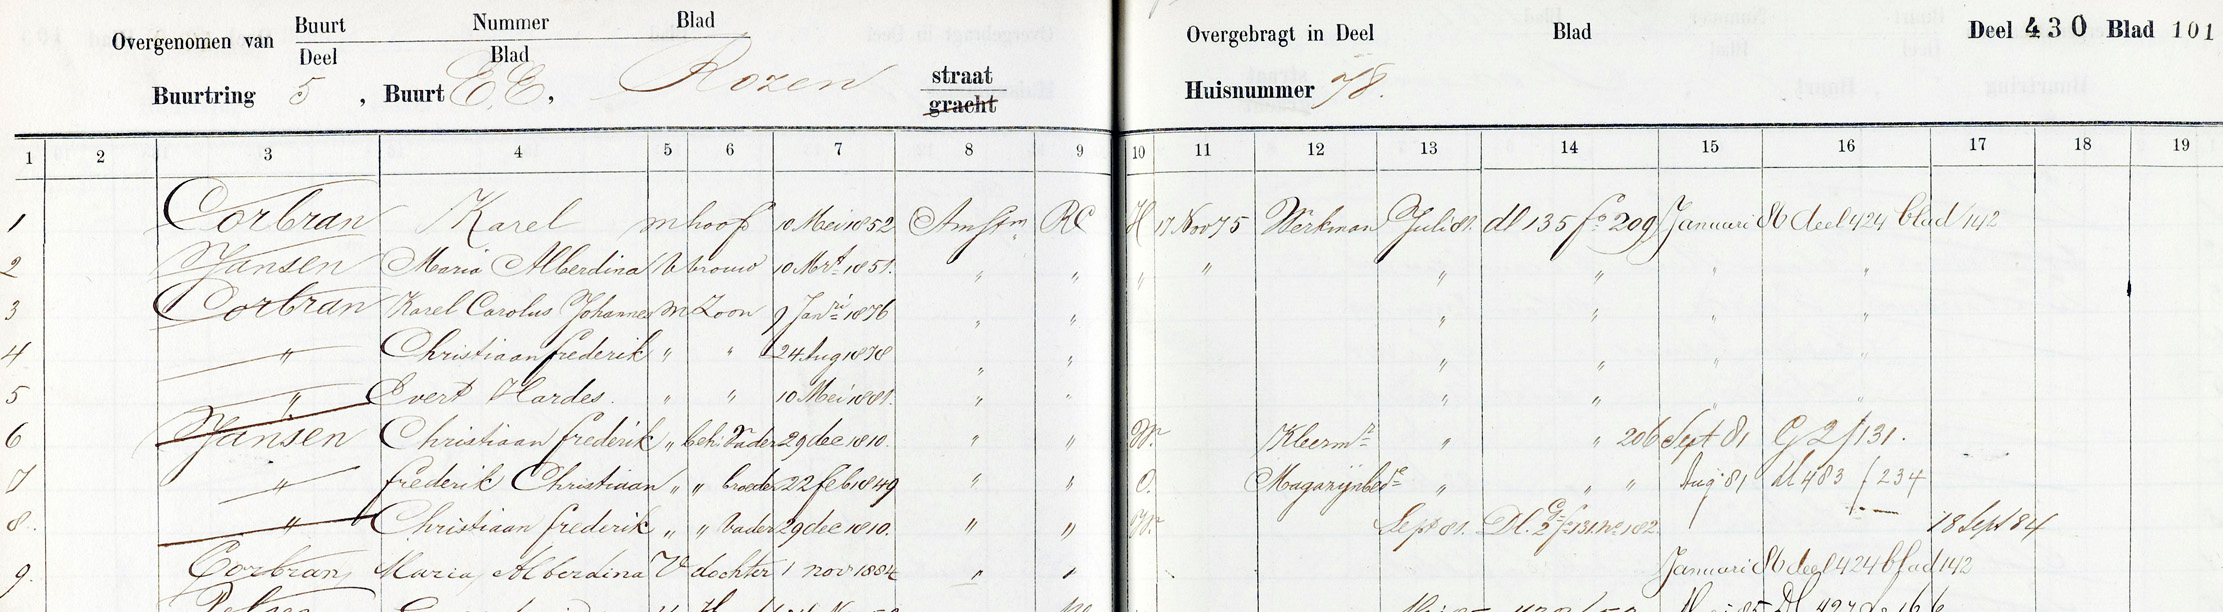 Overgenomen van Buurt Nummer Blad
Deel Blad
Buurtring 5, Buurt EE, Rozen straat
gracht
Overgebragt in Deel Blad Deel 430 Blad 101
Huisnummer 78.
1 2 3 4 5 6 7 8 9 10 11 12 13 14 15 16 17 18 19
1 Corbran Karel m hoofd 10 Mei 1852 Amstm RC H 17 Nov 75 Werkman Juli 81. dl 135 fo 209 Januari 86 deel 424 blad 142
2 Jansen Maria Alberdina V vrouw 10 Mrt 1851. " " " " " " " "
3 Corbran Karel Carolus Johannes m Zoon 9 Jani 1876 " " " " " "
4 " Christiaan frederik " " 24 Aug 1878 " " " " " "
5 " Evert Hardes. " " 10 Mei 1881. " " " " " "
6 Jansen Christiaan frederik " beh. Vader 29 dec 1810. " " Wr Kleermr " " 206 Sept 81 G 2 f 131.
7 " frederik Christiaan " " broeder 22 feb 1849 " " O. Magazijnbede " " " Aug 81 dl 483 f 234
8. " Christiaan frederik " " Vader 29 dec 1810. " " Wr Sept 81. Dl. G 2 f 131 no 182. 18 Sept 84
9. Corbran Maria Alberdina V dochter 1 nov 1884 " " Januari 86 deel 424 blad 142